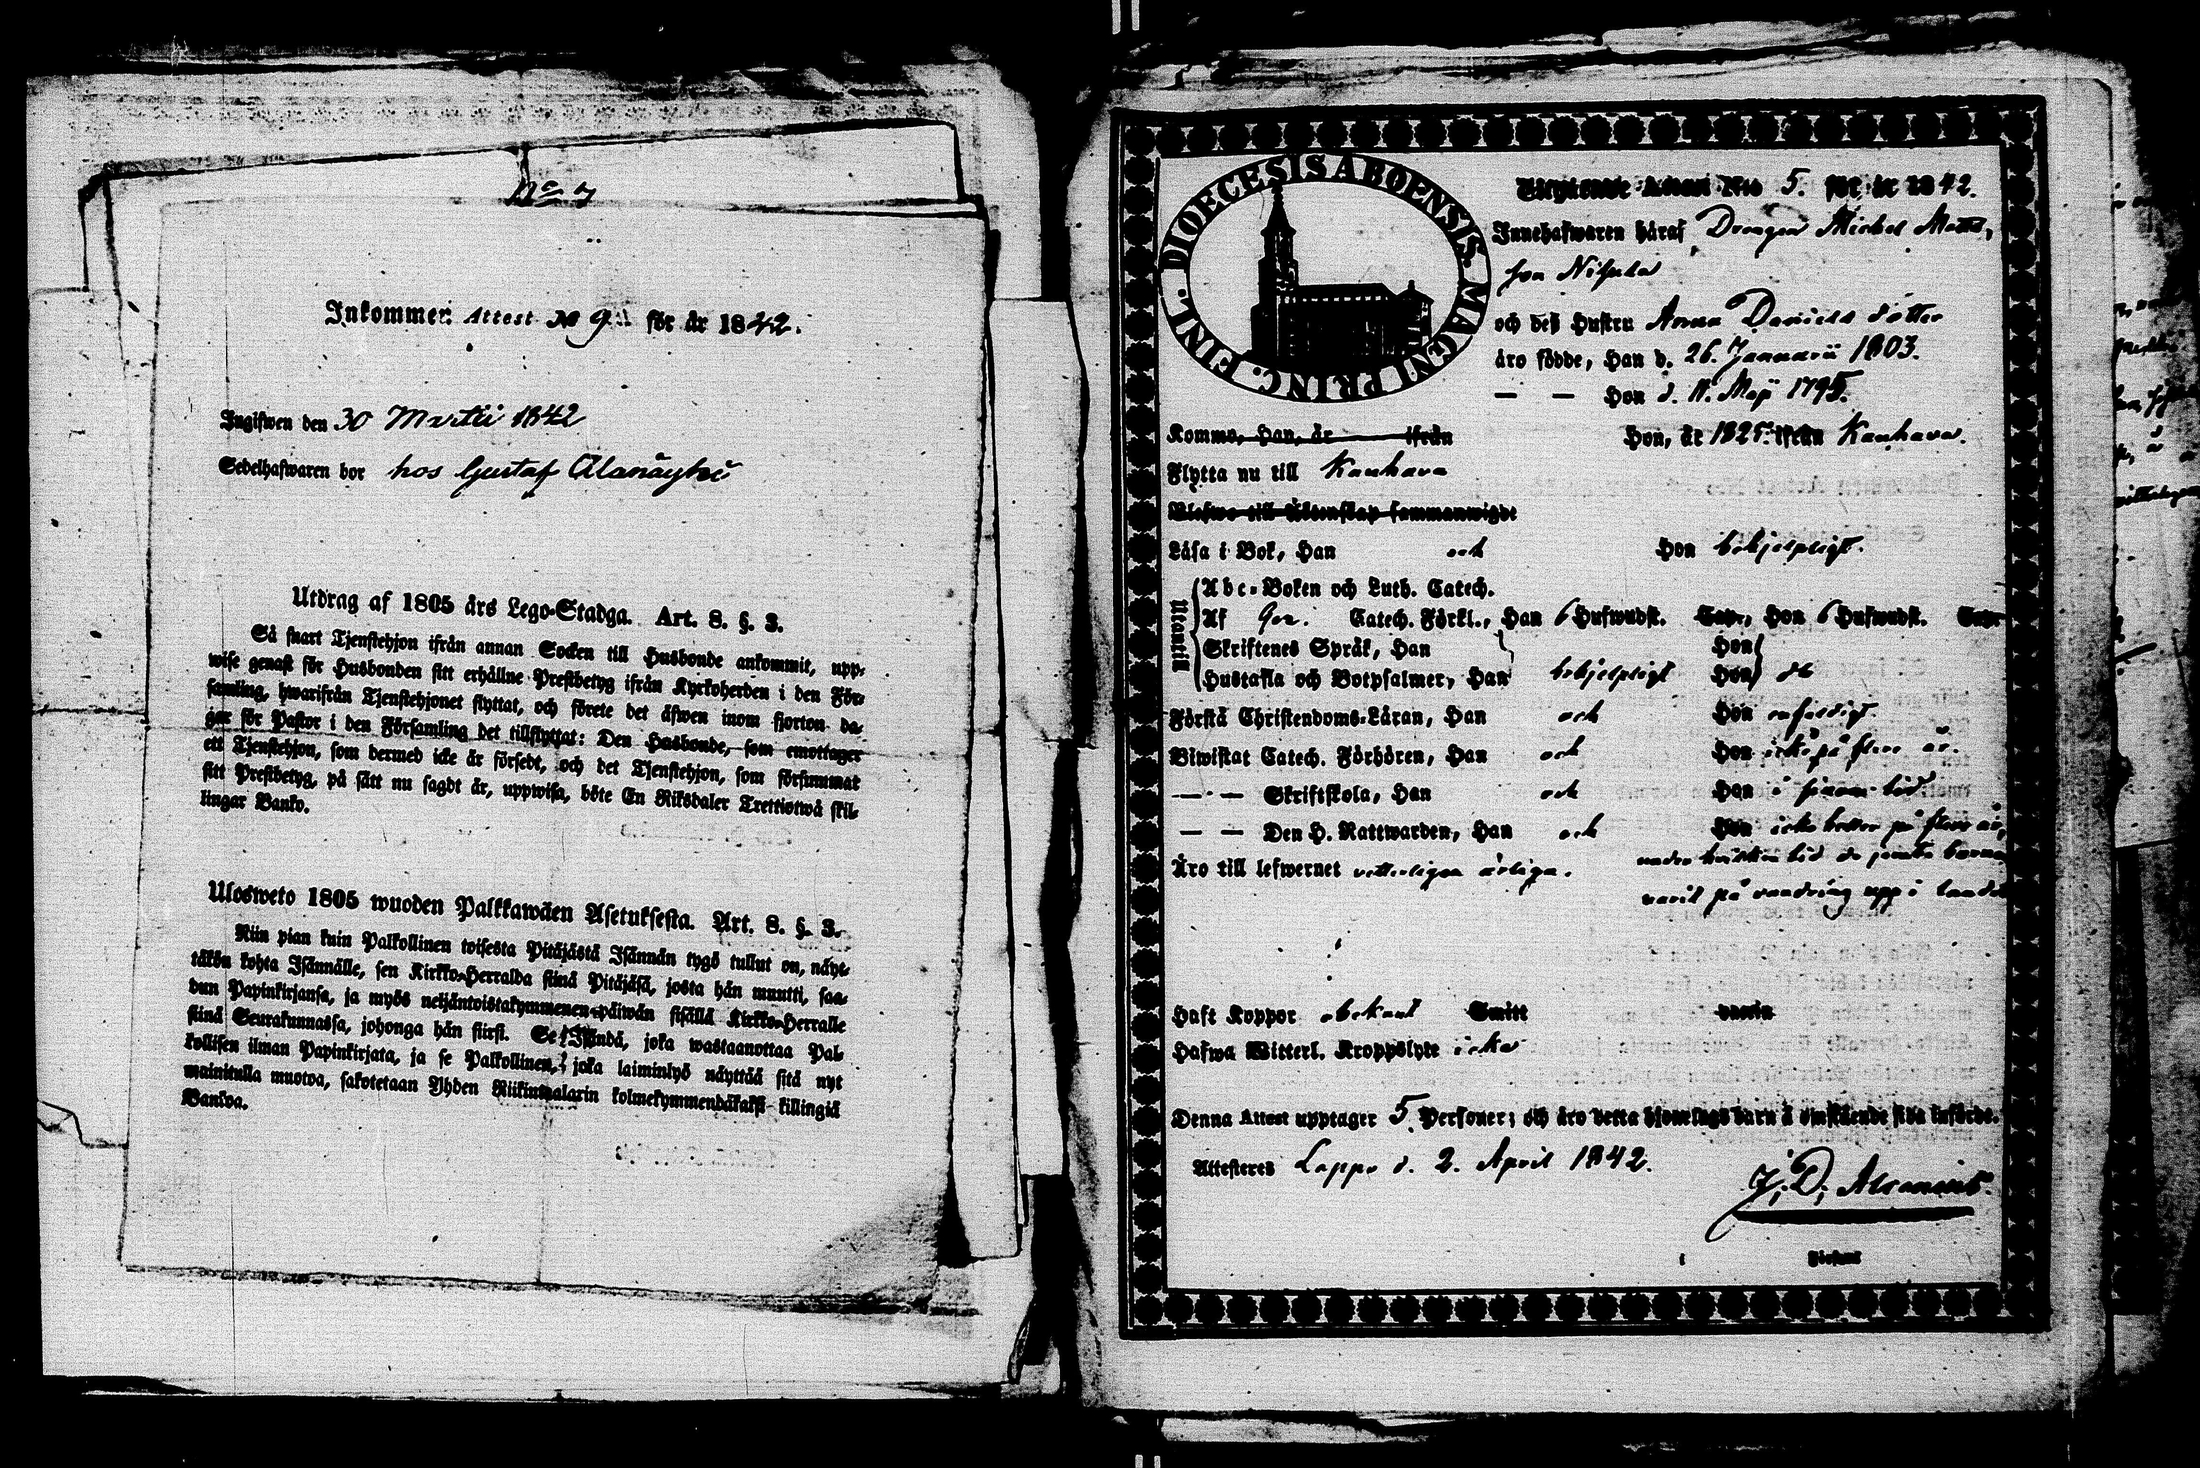 No 7
Inkommen Attest No 9 för år 1842.
Ingifwen den 30 Martii 1842
Sedelhafwaren bor hos Gustaf Alanäykö
Utdrag af 1805 års Lego-Stadga. Art. 8. §. 3.
Så snart Tjenstehjon ifrån annan Socken till Husbonde ankommit, upp-
wise genast för Husbonden sitt erhållne Prestbetyg ifrån Kyrkoherden i den För-
samling, hwarifrån Tjenstehjonet flyttat, och förete det äfwen inom fjorton da-
gar för Pastor i den Församling det tillflyttat: Den Husbonde, som emottager
ett Tjenstehjon, som dermed icke är försedt, och det Tjenstehjon, som försummat
sitt Prestbetyg, på sätt nu sagdt är, uppwisa, böte En Riksdaler Trettiotwå skil-
lingar Banko.
Ulosweto 1805 wuoden Palkkawäen Asetuksesta. Art. 8. §. 3.
Niin pian kuin Palkollinen toisesta Pitäjästä Isännän tygö tullut on, näyt-
täkön kohta Isännälle, sen Kirkko-Herralda siinä Pitäjäsä, josta hän muutti, saa-
dun Papinkirjansa, ja myös neljäntoistakymmenen päiwän sisällä Kirkko-Herralle
siinä Seurakunnassa, johonga hän siirsi. Se Isändä, joka wastaanottaa Pal-
kollisen ilman Papinkirjata, ja se Palkollinen, joka laiminlyö näyttää sitä nyt
mainitulla muotoa, sakotetaan Yhden Riikintalarin kolmekymmendäkaksi killingiä
Bankoa.
DIOECESIS ABOENSIS. MAGNI PRINC. FINL.
Attest No 5. för år 1842.
Innehafwaren häraf Drengen Michel Matts,
son
och deß Hustru Anna Daniels dotter
äro födde, Han d. 26. Januarii 1803.
— — Hon d. 11. Maji 1795.
Kommo, Han, år ifrån Hon, år 1825 ifrån Kauhava.
Flytta nu till Kauhava
Blefwo till Äktenskap sammanwigde
Läsa i Bok, Han och Hon behjelpligt.
Utantill
Abc-Boken och Luth. Catech.
Af Catech. Förkl., Han 6 Hufwudst. Cap, Hon 6 Hufwudst. Cap
Skriftenes Språk, Han Hon
Hustafla och Botpsalmer, Han behjelpligt Hon do
Förstå Christendoms-Läran, Han och Hon enfaldigt.
Biwistat Catech. Förhören, Han och Hon icke på flere år.
— — Skriftskola, Han och Hon i sinom tid
— — Den H. Nattwarden, Han och Hon icke heller på flere år,
under hvilken tid de jemte barnen
varit på vandring upp i landet
Äro till lefwernet vetterligen ärliga.
Haft Koppor obekant Smitt
Hafwa Witterl. Kroppslyte icke
Denna Attest upptager 5 Personer; och äro detta hjonelags barn å omstående sida införde.
Attesteres Lappo d. 2. April 1842.
J. D. Alcenius.